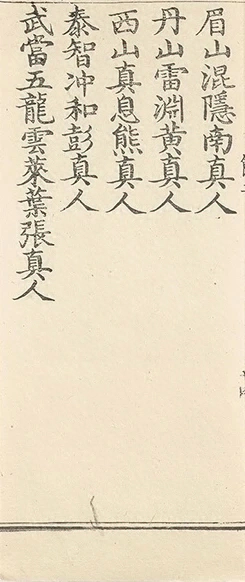 眉山混隱南真人
丹山雷淵黃真人
西山真息熊真人
泰智冲和彭真人
武當五龍雲萊葉張真人